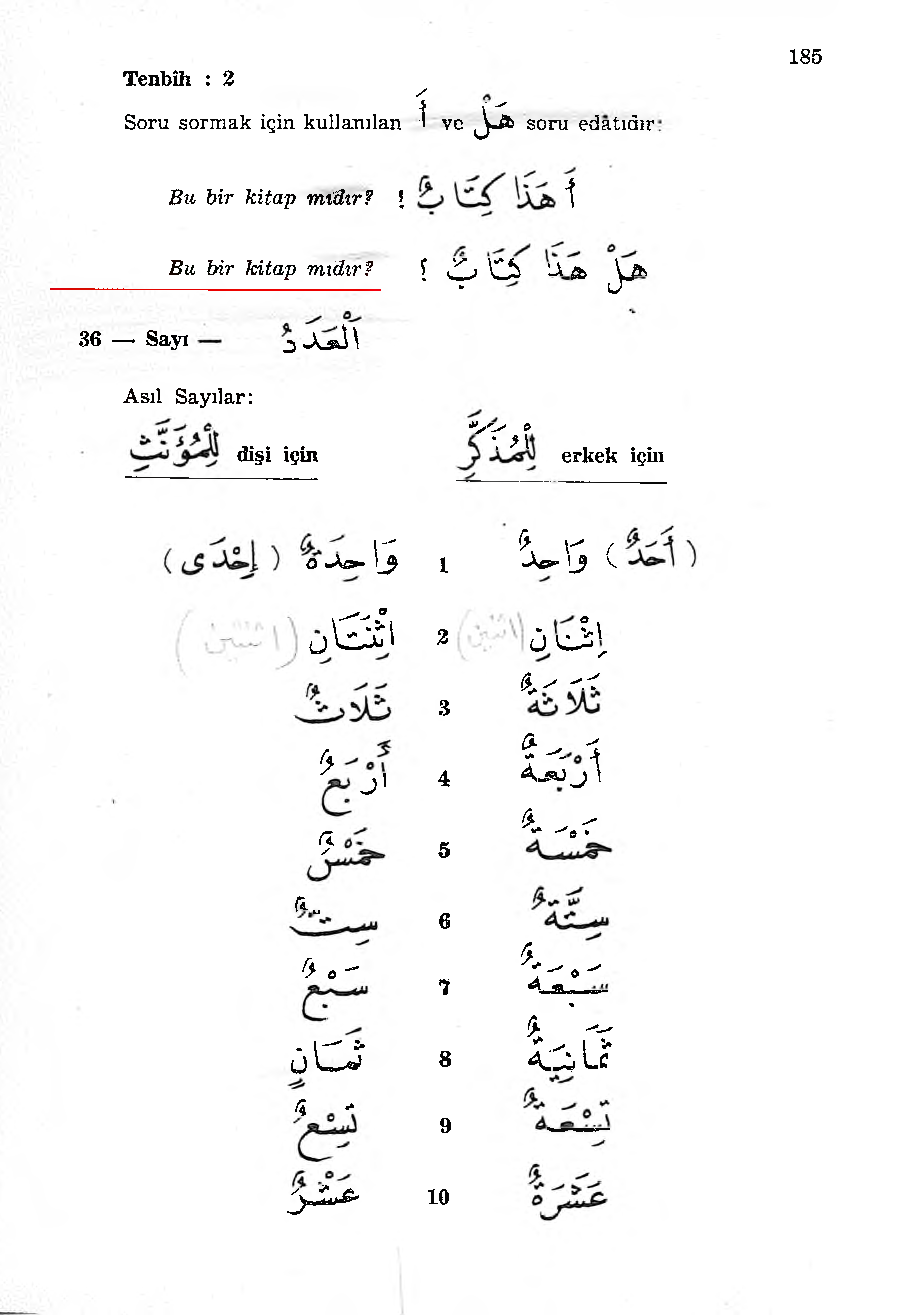 185
Tenbîh : 2
Soru sormak için kullanılan أَ ve هَلْ soru edâtıdır:
Bu bir kitap mıdır? أَ هَذَا كِتَابٌ !
Bu bir kitap mıdır? هَلْ هَذَا كِتَابٌ ؟
36 — Sayı — اَلْعَدَدُ
Asıl Sayılar:
لِلْمُؤَنَّثِ dişi için لِلْمُذَكَّرِ erkek için
وَاحِدَةٌ ( إِحْدَى ) 1 ( أَحَدٌ ) وَاحِدٌ
اثْنَتَانِ (اثنتين) 2 اِثْنَانِ (اثنين)
ثَلَاثٌ 3 ثَلَاثَةٌ
أَرْبَعٌ 4 أَرْبَعَةٌ
خَمْسٌ 5 خَمْسَةٌ
سِتٌّ 6 سِتَّةٌ
سَبْعٌ 7 سَبْعَةٌ
ثَمَانٍ 8 ثَمَانِيَةٌ
تِسْعٌ 9 تِسْعَةٌ
عَشْرٌ 10 عَشَرَةٌ